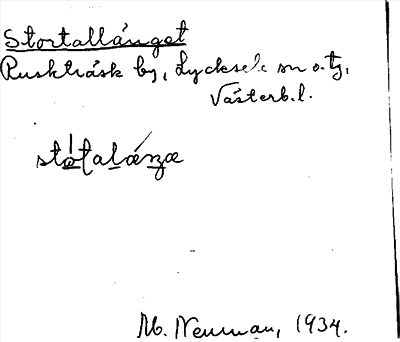 Stortallånget
Ruskträsk by, Lycksele sn o. tg,
Västerb.l.
M. Neuman, 1934.